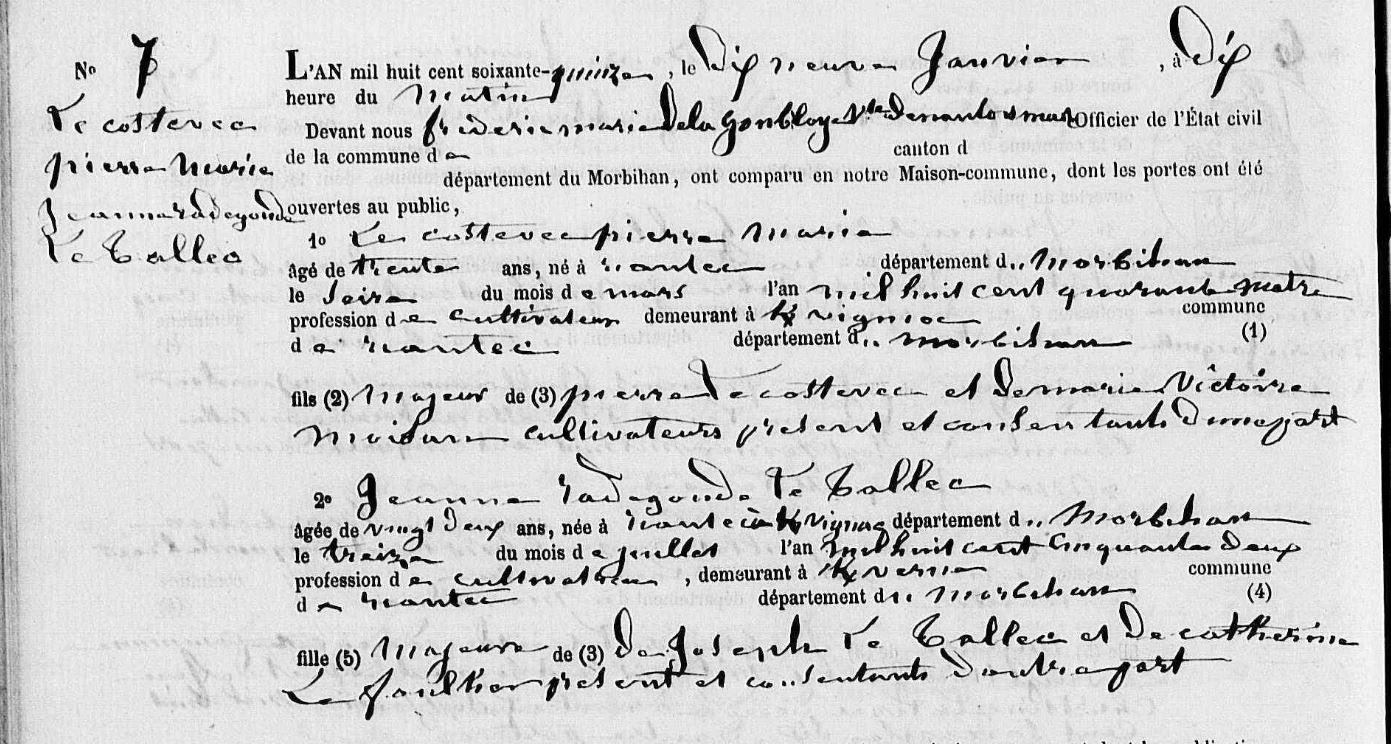 No 7
Le costevec
pierre Marie
Jeanne radegonde
Le Tallec
L'AN mil huit cent soixante-quinze, le dix neuve Janvier, à dix
heure du matin
Devant nous frederic marie De la Officier de l'État civil
de la commune d e canton d
département du Morbihan, ont comparu en notre Maison-commune, dont les portes ont été
ouvertes au public,
1o Le costevec pierre Marie
âgé de trente ans, né à riantec département d u Morbihan
le seize du mois d e mars l'an mil huit cent quarante quatre
profession d e cultivateur demeurant à commune
d e riantec département d u morbihan (1)
fils (2) Majeur de (3) pierre Le costevec et De marie Victoire
cultivateurs présent et consentants d'une part
2o Jeanne radegonde Le Tallec
âgée de vingt deux ans, née à riantec département d u Morbihan
le treize du mois d e juillet l'an mil huit cent cinquante deux
profession d e cultivatrice, demeurant à commune
d e riantec département d u morbihan (4)
fille (5) Majeure de (3) De Joseph Le Tallec et De catherine
Le présent et consentants D'autre part